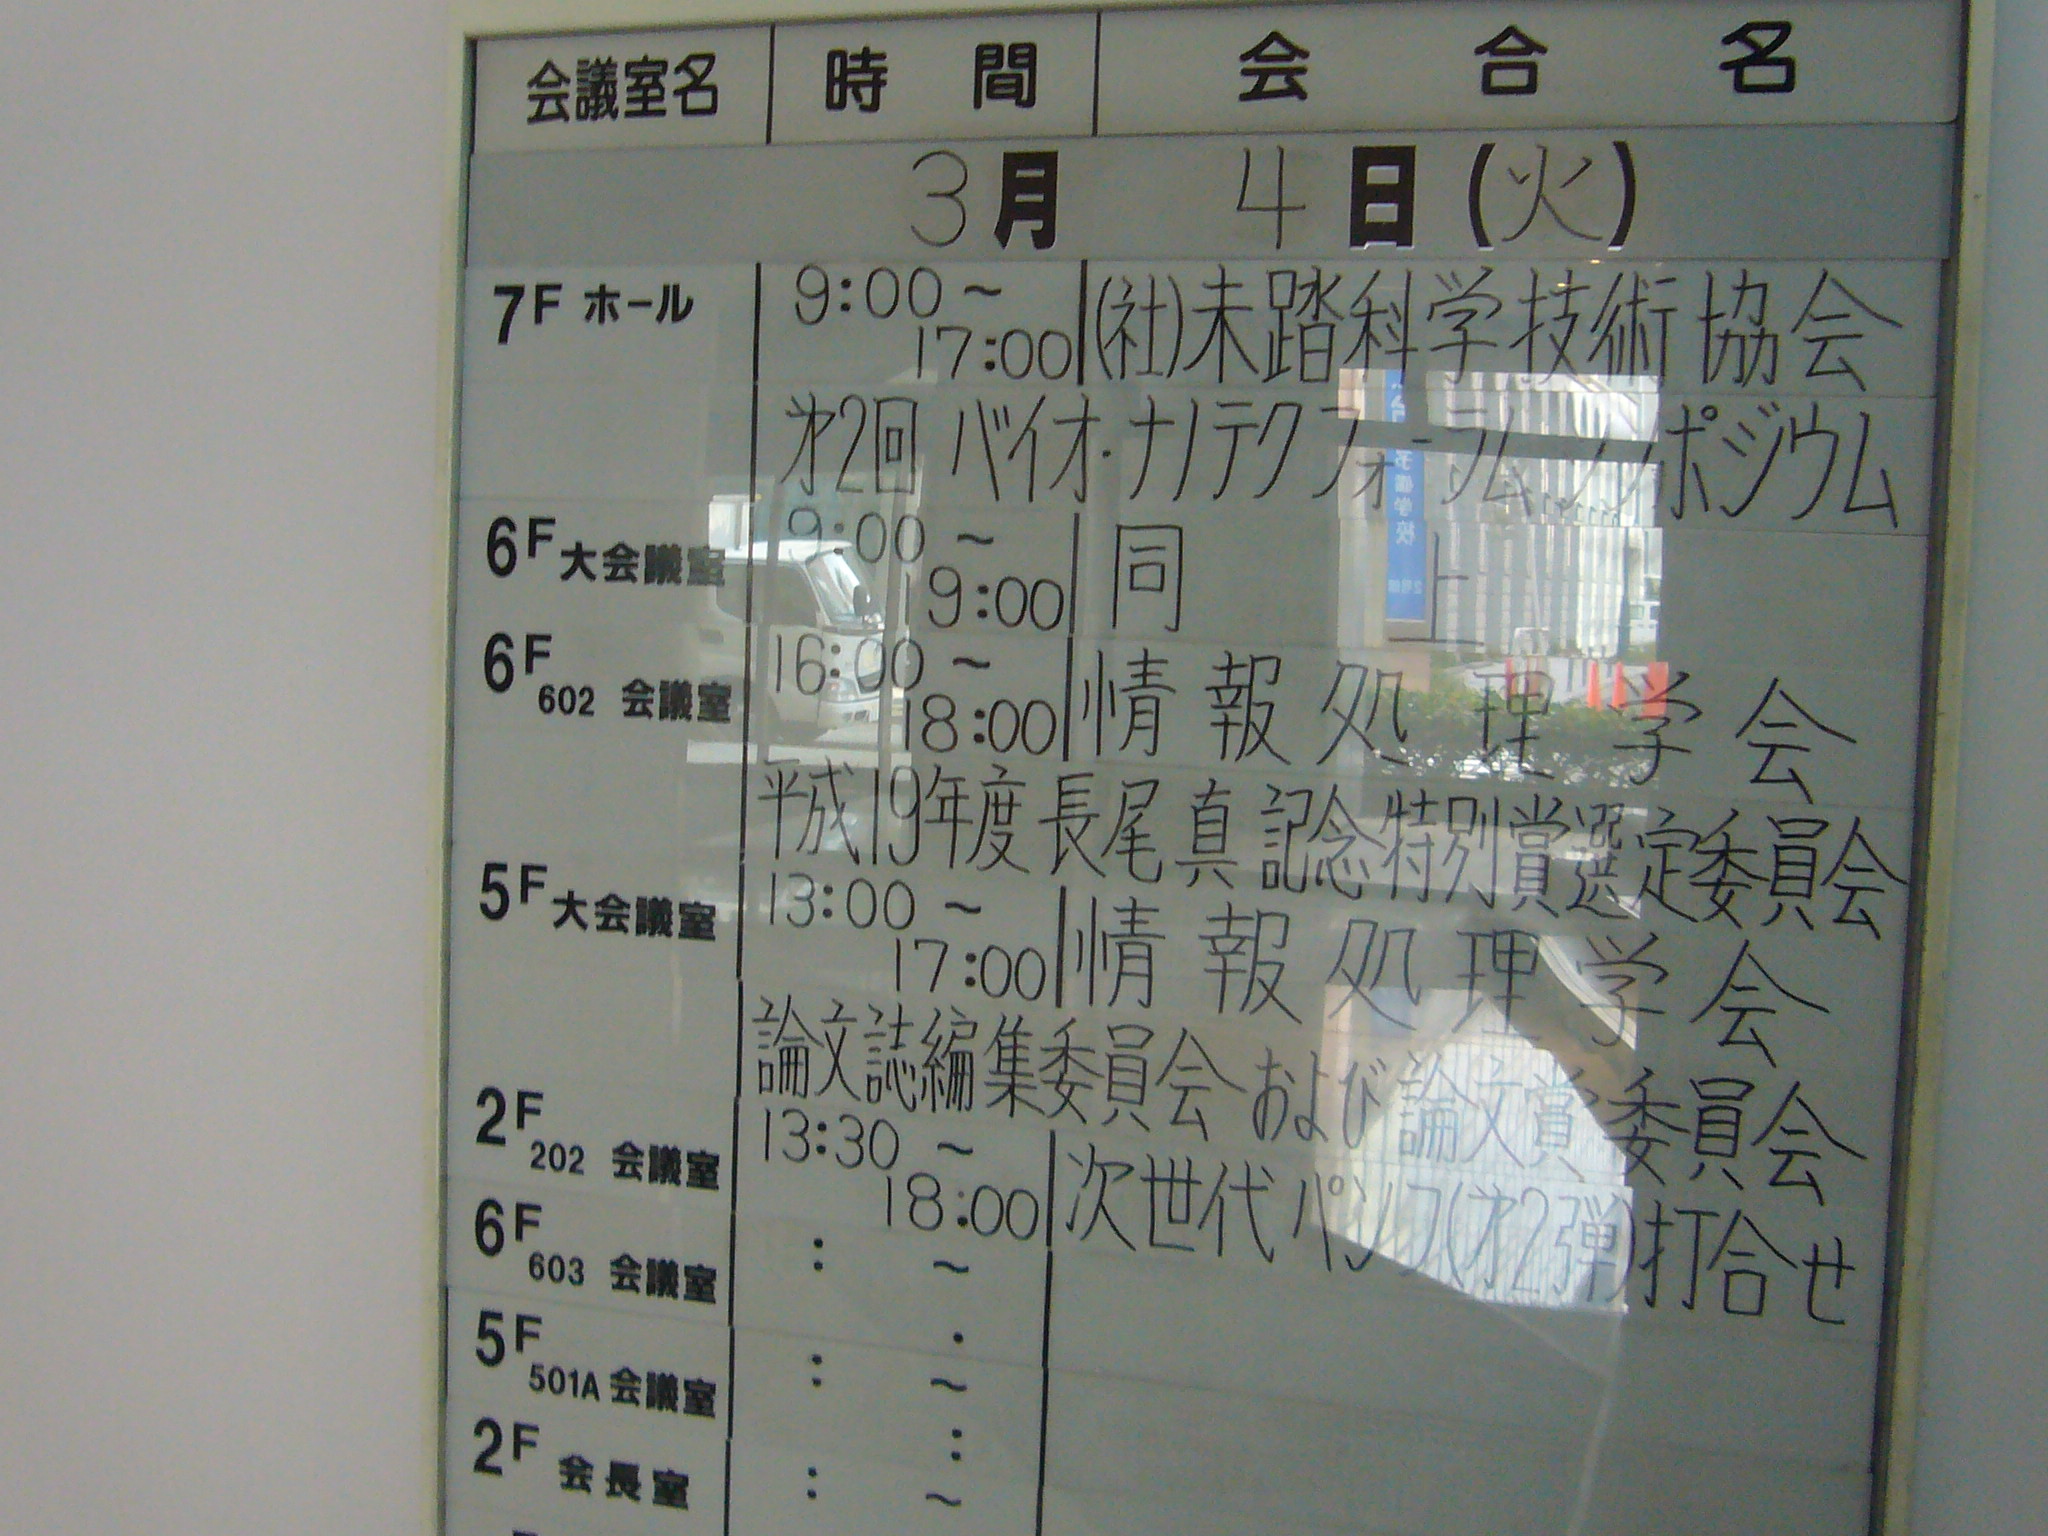 会議室名 時間 会合名
3月 4日(火)
7F ホール 9:00~17:00 (社)未踏科学技術協会
才2回 バイオ・ナノテクフォーラムシンポジウム
6F 大会議室 9:00~19:00 同 上
6F 602 会議室 16:00~18:00 情報処理学会
平成19年度長尾真記念特別賞選定委員会
5F 大会議室 13:00~17:00 情報処理学会
論文誌編集委員会および論文賞委員会
2F 202 会議室 13:30~18:00 次世代パンフ(才2弾)打合せ
6F 603 会議室 : ~ :
5F 501A 会議室 : ~ :
2F 会長室 : ~
予備学校